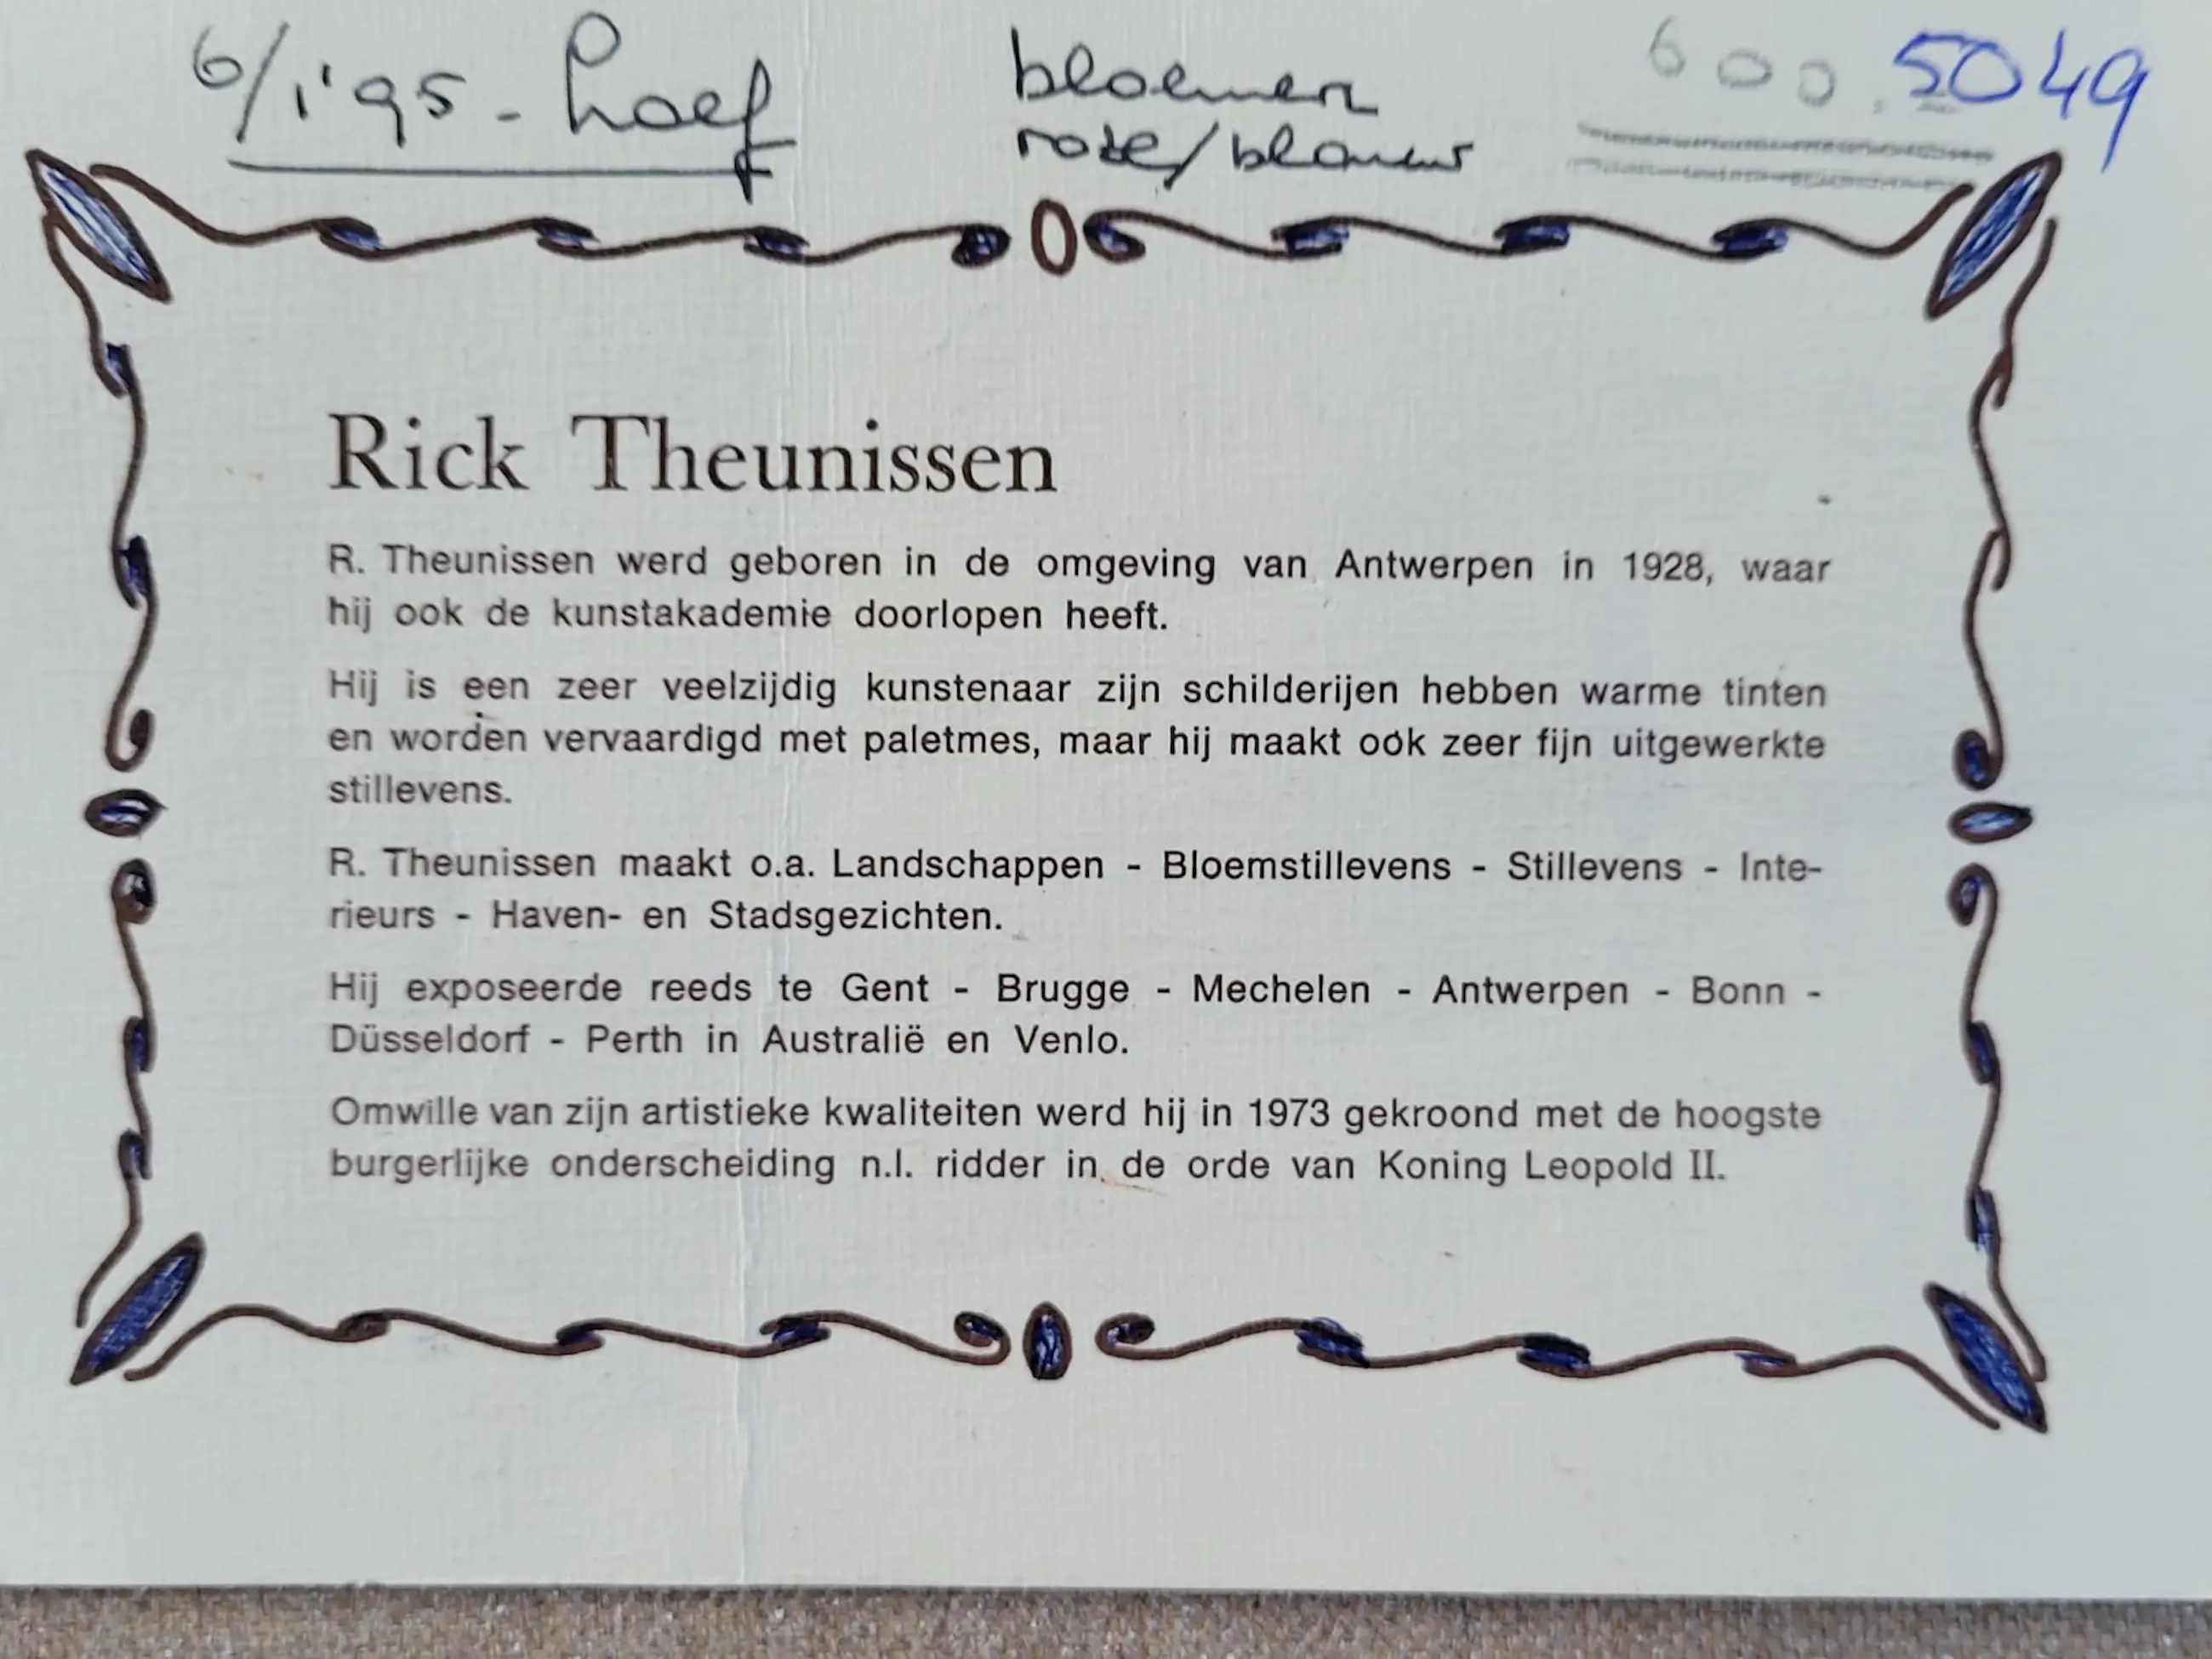 6/1'95 - hoef
bloemen
roze/blauw
600.
5049
Rick Theunissen
R. Theunissen werd geboren in de omgeving van Antwerpen in 1928, waar
hij ook de kunstakademie doorlopen heeft.
Hij is een zeer veelzijdig kunstenaar zijn schilderijen hebben warme tinten
en worden vervaardigd met paletmes, maar hij maakt ook zeer fijn uitgewerkte
stillevens.
R. Theunissen maakt o.a. Landschappen - Bloemstillevens - Stillevens - Inte-
rieurs - Haven- en Stadsgezichten.
Hij exposeerde reeds te Gent - Brugge - Mechelen - Antwerpen - Bonn -
Düsseldorf - Perth in Australië en Venlo.
Omwille van zijn artistieke kwaliteiten werd hij in 1973 gekroond met de hoogste
burgerlijke onderscheiding n.l. ridder in de orde van Koning Leopold II.